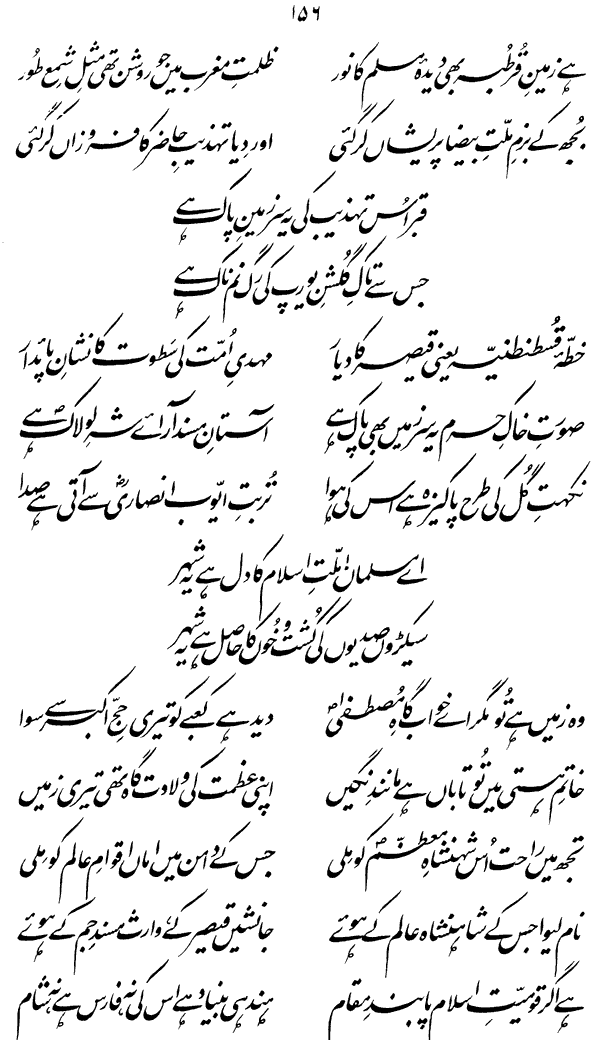 ۱۵۶
ہے زمینِ قُرطُبہ بھی دیدۂ مسلم کا نور ظلمتِ مغرب میں جو روشن تھی مثلِ شمعِ طُور
بُجھ کے بزمِ ملّتِ بیضا پریشاں کر گئی اور دِیا تہذیبِ حاضر کا فروزاں کر گئی
قبر اُس تہذیب کی یہ سرزمینِ پاک ہے
جس سے تاکِ گلشنِ یورپ کی رگ نم ناک ہے
خطّۂ قُسطنطنیّہ یعنی قیصر کا دیار مہدیِ اُمّت کی سَطوت کا نشانِ پائدار
صورتِ خاکِ حرم یہ سرزمیں بھی پاک ہے آستانِ مسند آرائے شہِ لولاکؐ ہے
نکہتِ گُل کی طرح پاکیزہ ہے اس کی ہوا تُربتِ ایّوب انصاریؓ سے آتی ہے صدا
اے مسلماں! ملّتِ اسلام کا دل ہے یہ شہر
سیکڑوں صدیوں کی کُشت و خُوں کا حاصل ہے یہ شہر
وہ زمیں ہے تُو مگر اے خواب گاہِ مُصطفیٰؐ دید ہے کعبے کو تیری حجِّ اکبر سے سوا
خاتمِ ہستی میں تُو تاباں ہے مانندِ نگیں اپنی عظمت کی ولادت گاہ تھی تیری زمیں
تجھ میں راحت اُس شہنشاہِ معظّمؐ کو ملی جس کے دامن میں اماں اقوامِ عالم کو ملی
نام لیوا جس کے شاہنشاہ عالم کے ہوئے جانشیں قیصر کے، وارث مسندِ جم کے ہوئے
ہے اگر قومیّتِ اسلام پابندِ مقام ہند ہی بنیاد ہے اس کی، نہ فارس ہے، نہ شام